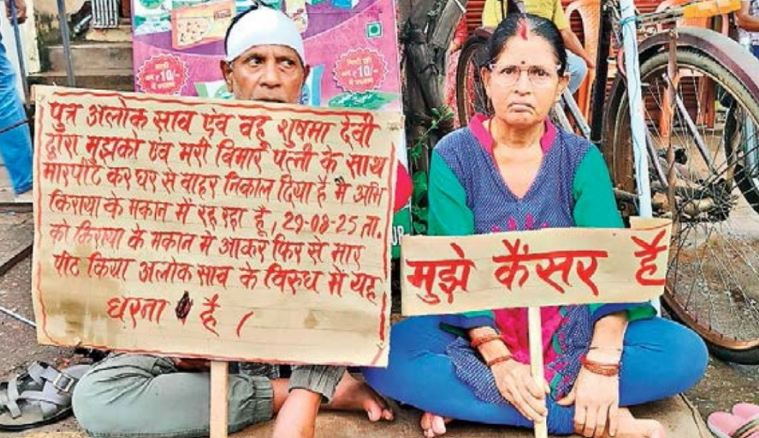 पुत्र अलोक साव एंव वहु शुषमा देवी
द्वारा मुझको एंव मेरी विमार पत्नी के साथ
मारपीट कर घर से वाहर निकाल दिया है मै अभि
किराया के मकान में रह रहा हूँ, 29-08-25 ता.
को किराया के मकान मे आकर फिर से मार
पीट किया अलोक साव के विरुध में यह
धरना है।
मुझे कैंसर है